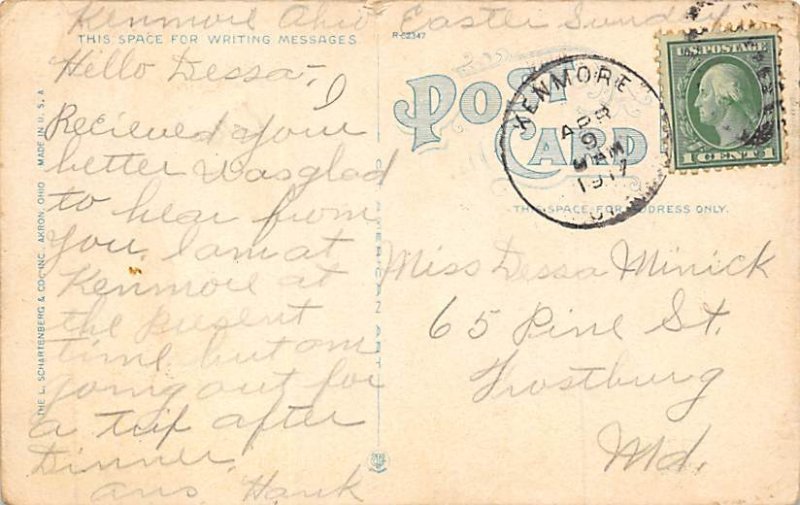 Kenmore Ohio Easter Sunday
THIS SPACE FOR WRITING MESSAGES
R-62347
Hello Dessa- I
Recieved your
letter was glad
to hear from
you. I am at
Kenmore at
the present
time but am
going out for
a trip after
Dinner.
ans. Hank
THE L. SCHARTENBERG & CO. INC. AKRON, OHIO MADE IN U.S.A
AMERICAN ART
POST CARD
KENMORE
APR
9
AM
1917
O.
U.S. POSTAGE
1 CENT 1
THIS SPACE FOR ADDRESS ONLY.
Miss Dessa Minick
65 Pine St.
Frostburg
Md.